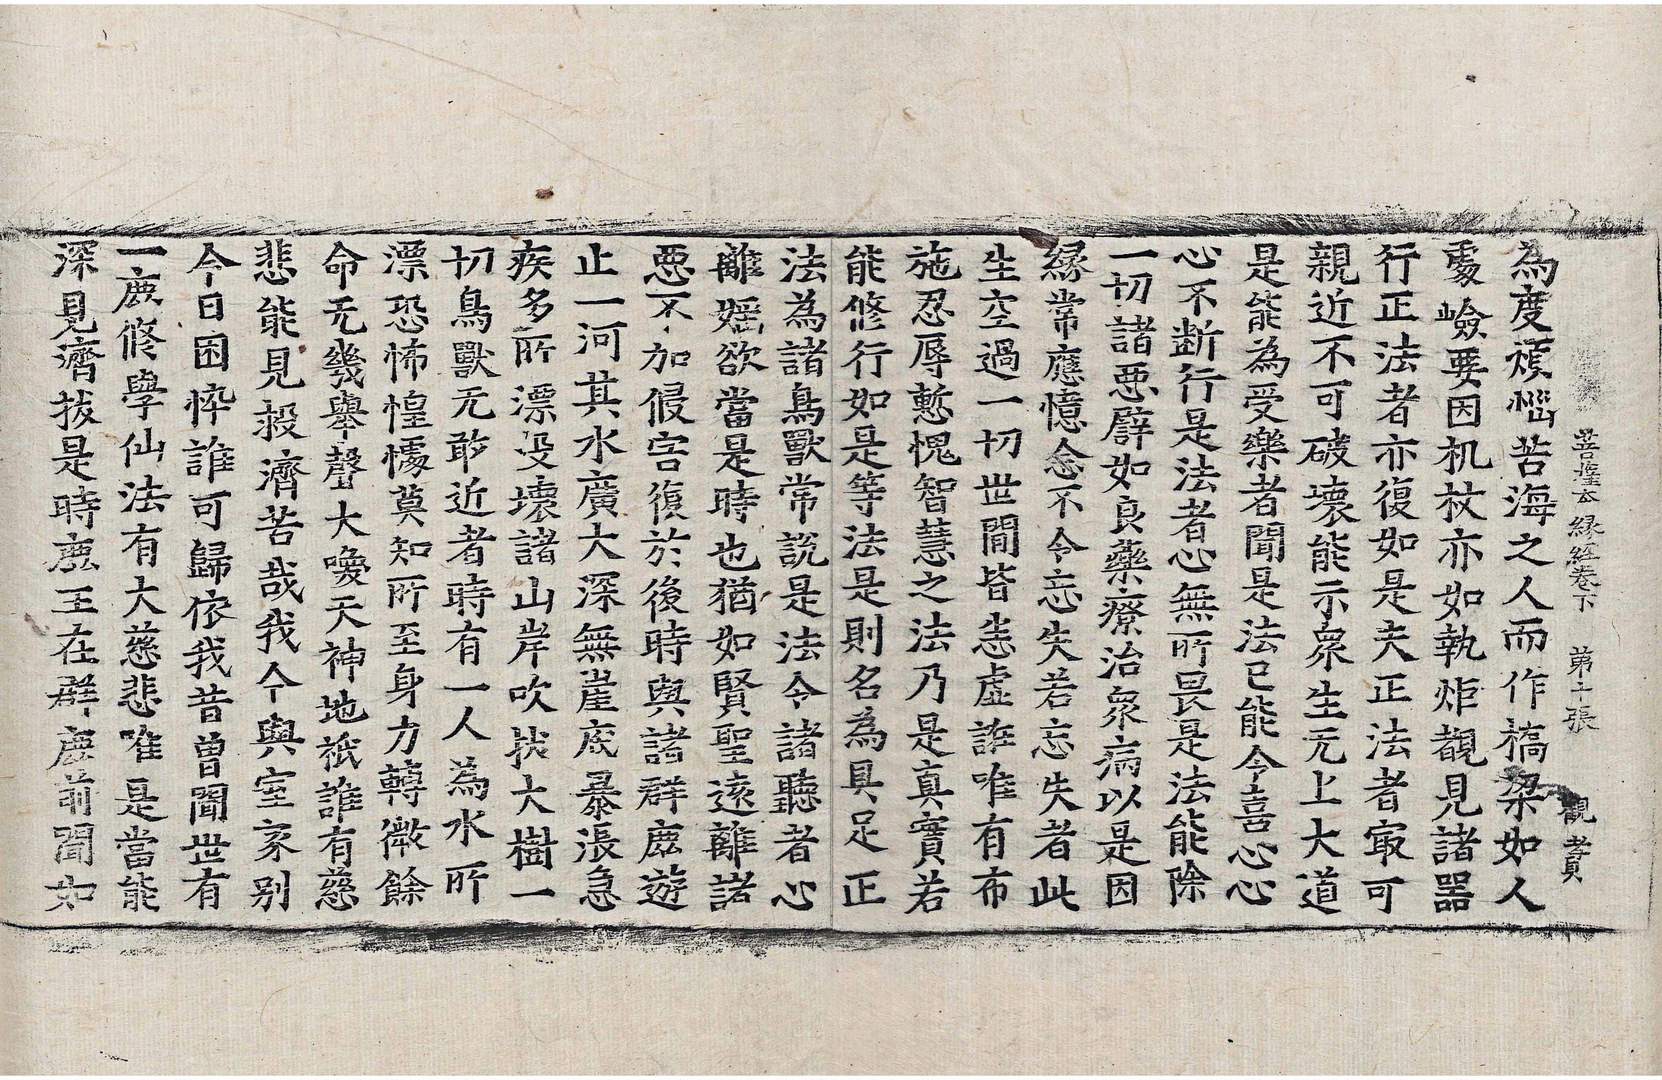 菩薩本縁経卷下　第十張　觀孝員
為度煩惱苦海之人而作橋梁如人
處嶮要因机杖亦如執炬覩見諸器
行正法者亦復如是夫正法者冣可
親近不可破壞能示衆生无上大道
是能為受樂者聞是法已能令喜心心
心不断行是法者心無所畏是法能除
一切諸惡譬如良藥療治衆病以是因
縁常應憶念不令忘失若忘失者此
生空過一切世間皆恚虛誰唯有布
施忍辱慙愧智慧之法乃是真實若
能修行如是等法是則名為具足正
法為諸鳥獸常說是法令諸聽者心
離婬欲當是時也猶如賢聖遠離諸
惡不加侵害復於後時與諸群鹿遊
止一河其水廣大深無崖底暴漲急
疾多所漂没壞諸山岸吹拔大樹一
切鳥獸无敢近者時有一人為水所
漂恐怖惶懅莫知所至身力轉微餘
命无幾舉聲大喚天神地祇誰有慈
悲能見救濟苦哉我今與室家别
今日困悴誰可歸依我昔曽聞世有
一鹿修學仙法有大慈悲唯是當能
深見濟拔是時鹿王在群鹿前聞如